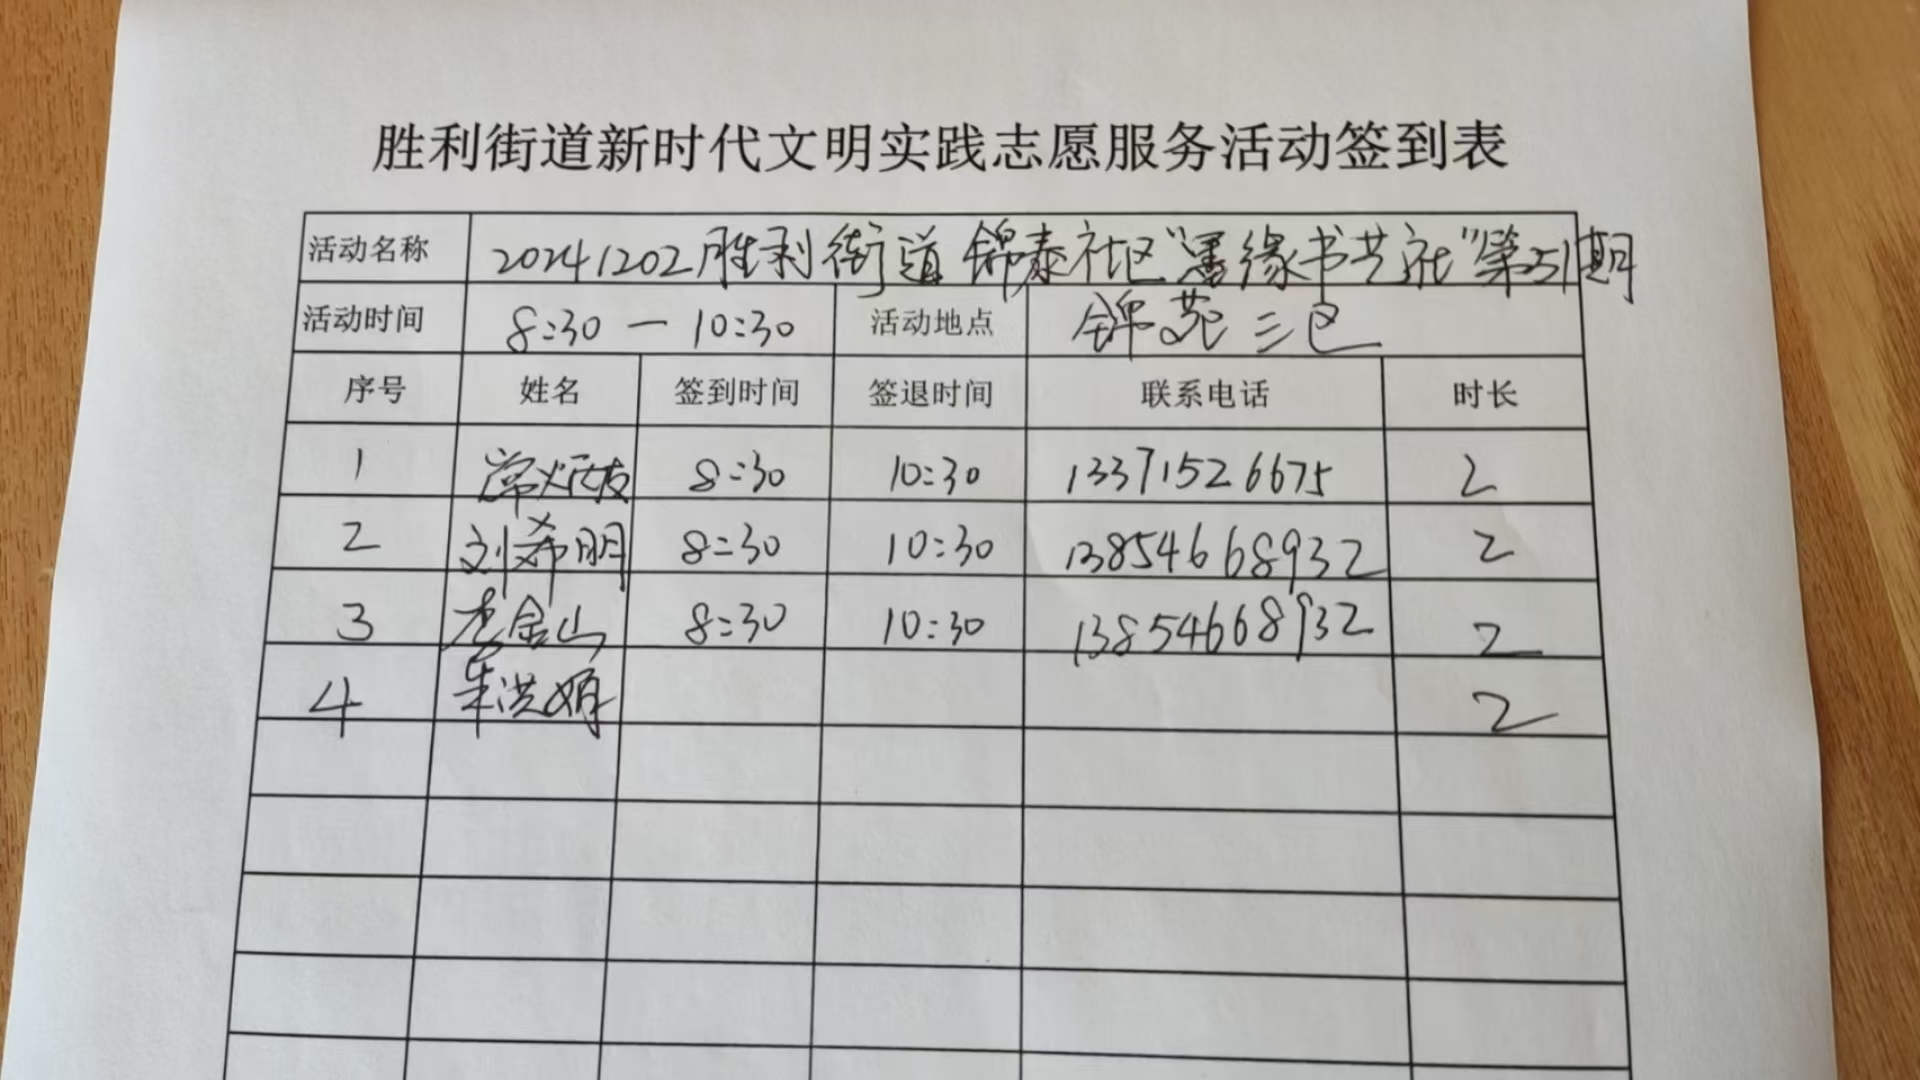 胜利街道新时代文明实践志愿服务活动签到表
活动名称 20241202胜利街道锦泰社区"墨缘书艺社"第51期
活动时间 8:30 — 10:30 活动地点 锦苑三区
序号 姓名 签到时间 签退时间 联系电话 时长
1 常炳友 8:30 10:30 13371526675 2
2 刘希明 8:30 10:30 13854668932 2
3 金山 8:30 10:30 13854668932 2
4 朱洪娟 2